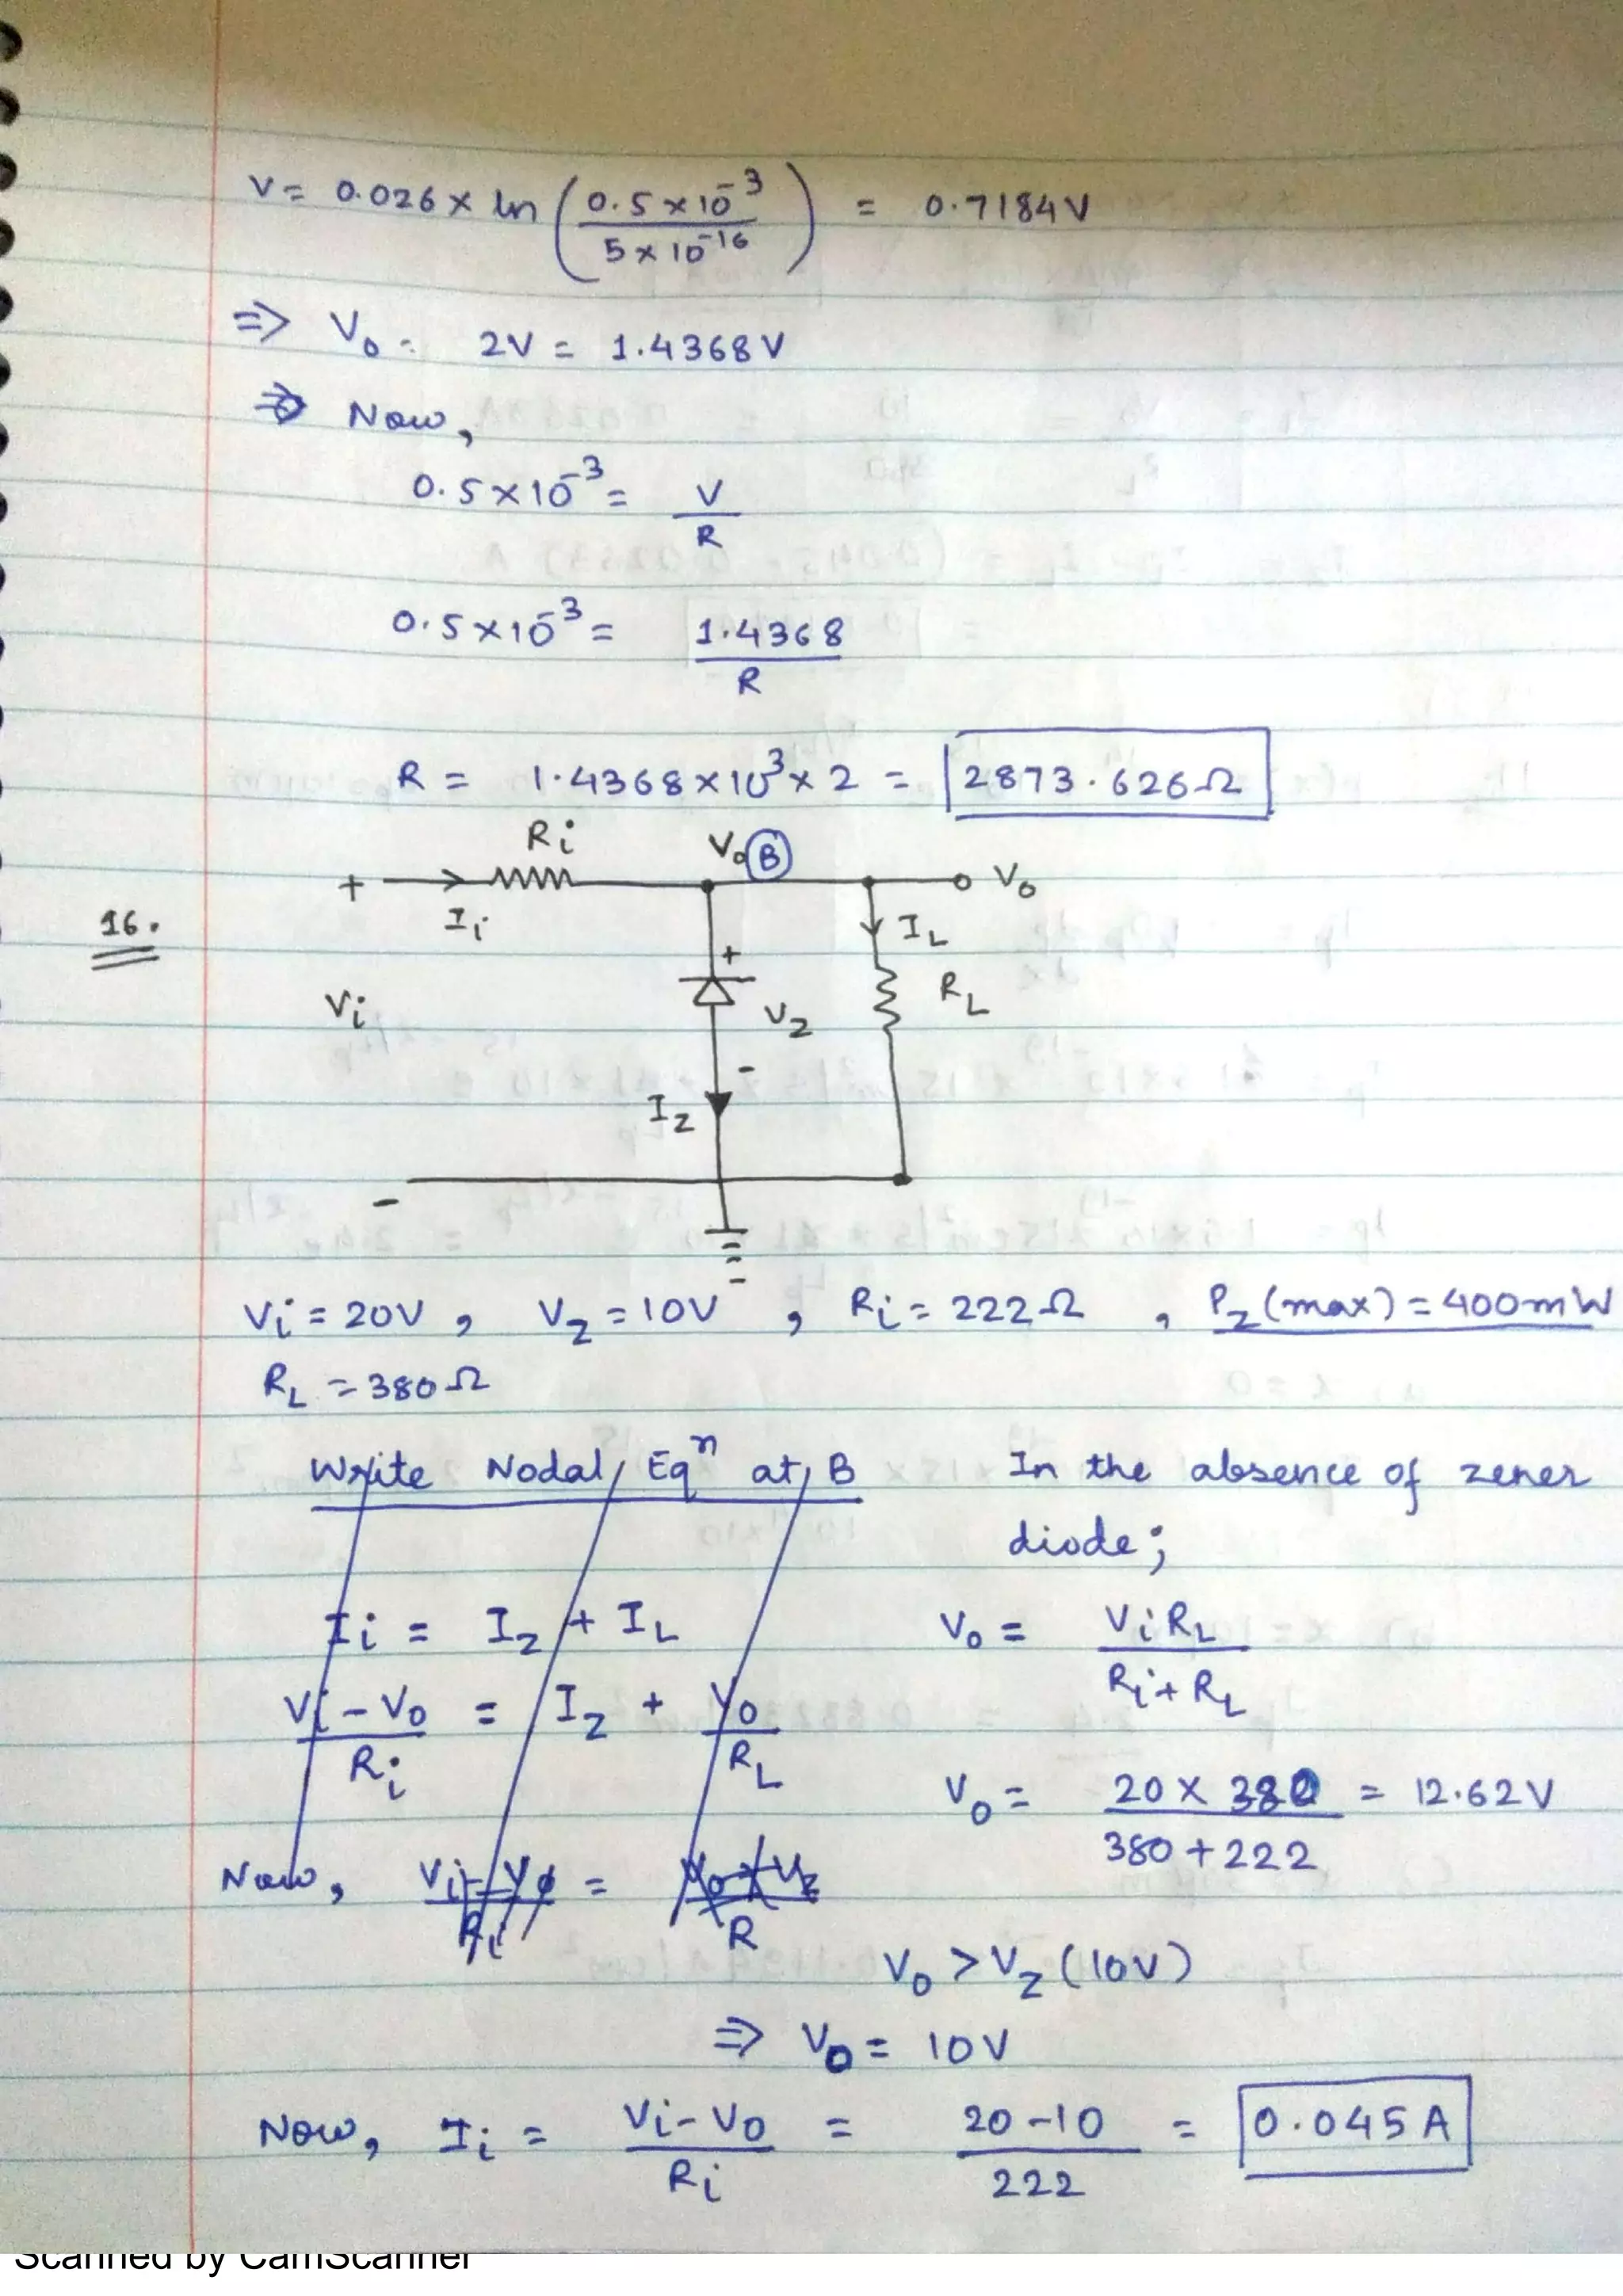 V = 0.026 × ln (0.5×10^-3 / 5×10^-16) = 0.7184V
=> Vo = 2V = 1.4368V
=> Now,
0.5×10^-3 = V/R
0.5×10^-3 = 1.4368/R
R = 1.4368×10^3×2 = 2873.626Ω
Ri
Vo B
+
Vo
16.
Ii
IL
+
RL
Vi
Vz
-
Iz
-
Vi = 20V, Vz = 10V, Ri = 222Ω, Pz(max) = 400mW
RL = 380Ω
Write Nodal Eq^n at B
Ii = Iz + IL
(Vi-Vo)/Ri = Iz + Vo/RL
Now,
In the absence of zener
diode;
Vo = ViRL/(Ri+RL)
Vo = (20×380)/(380+222) = 12.62V
Vo > Vz (10V)
=> Vo = 10V
Now, Ii = (Vi-Vo)/Ri = (20-10)/222 = 0.045A
Scanned by CamScanner